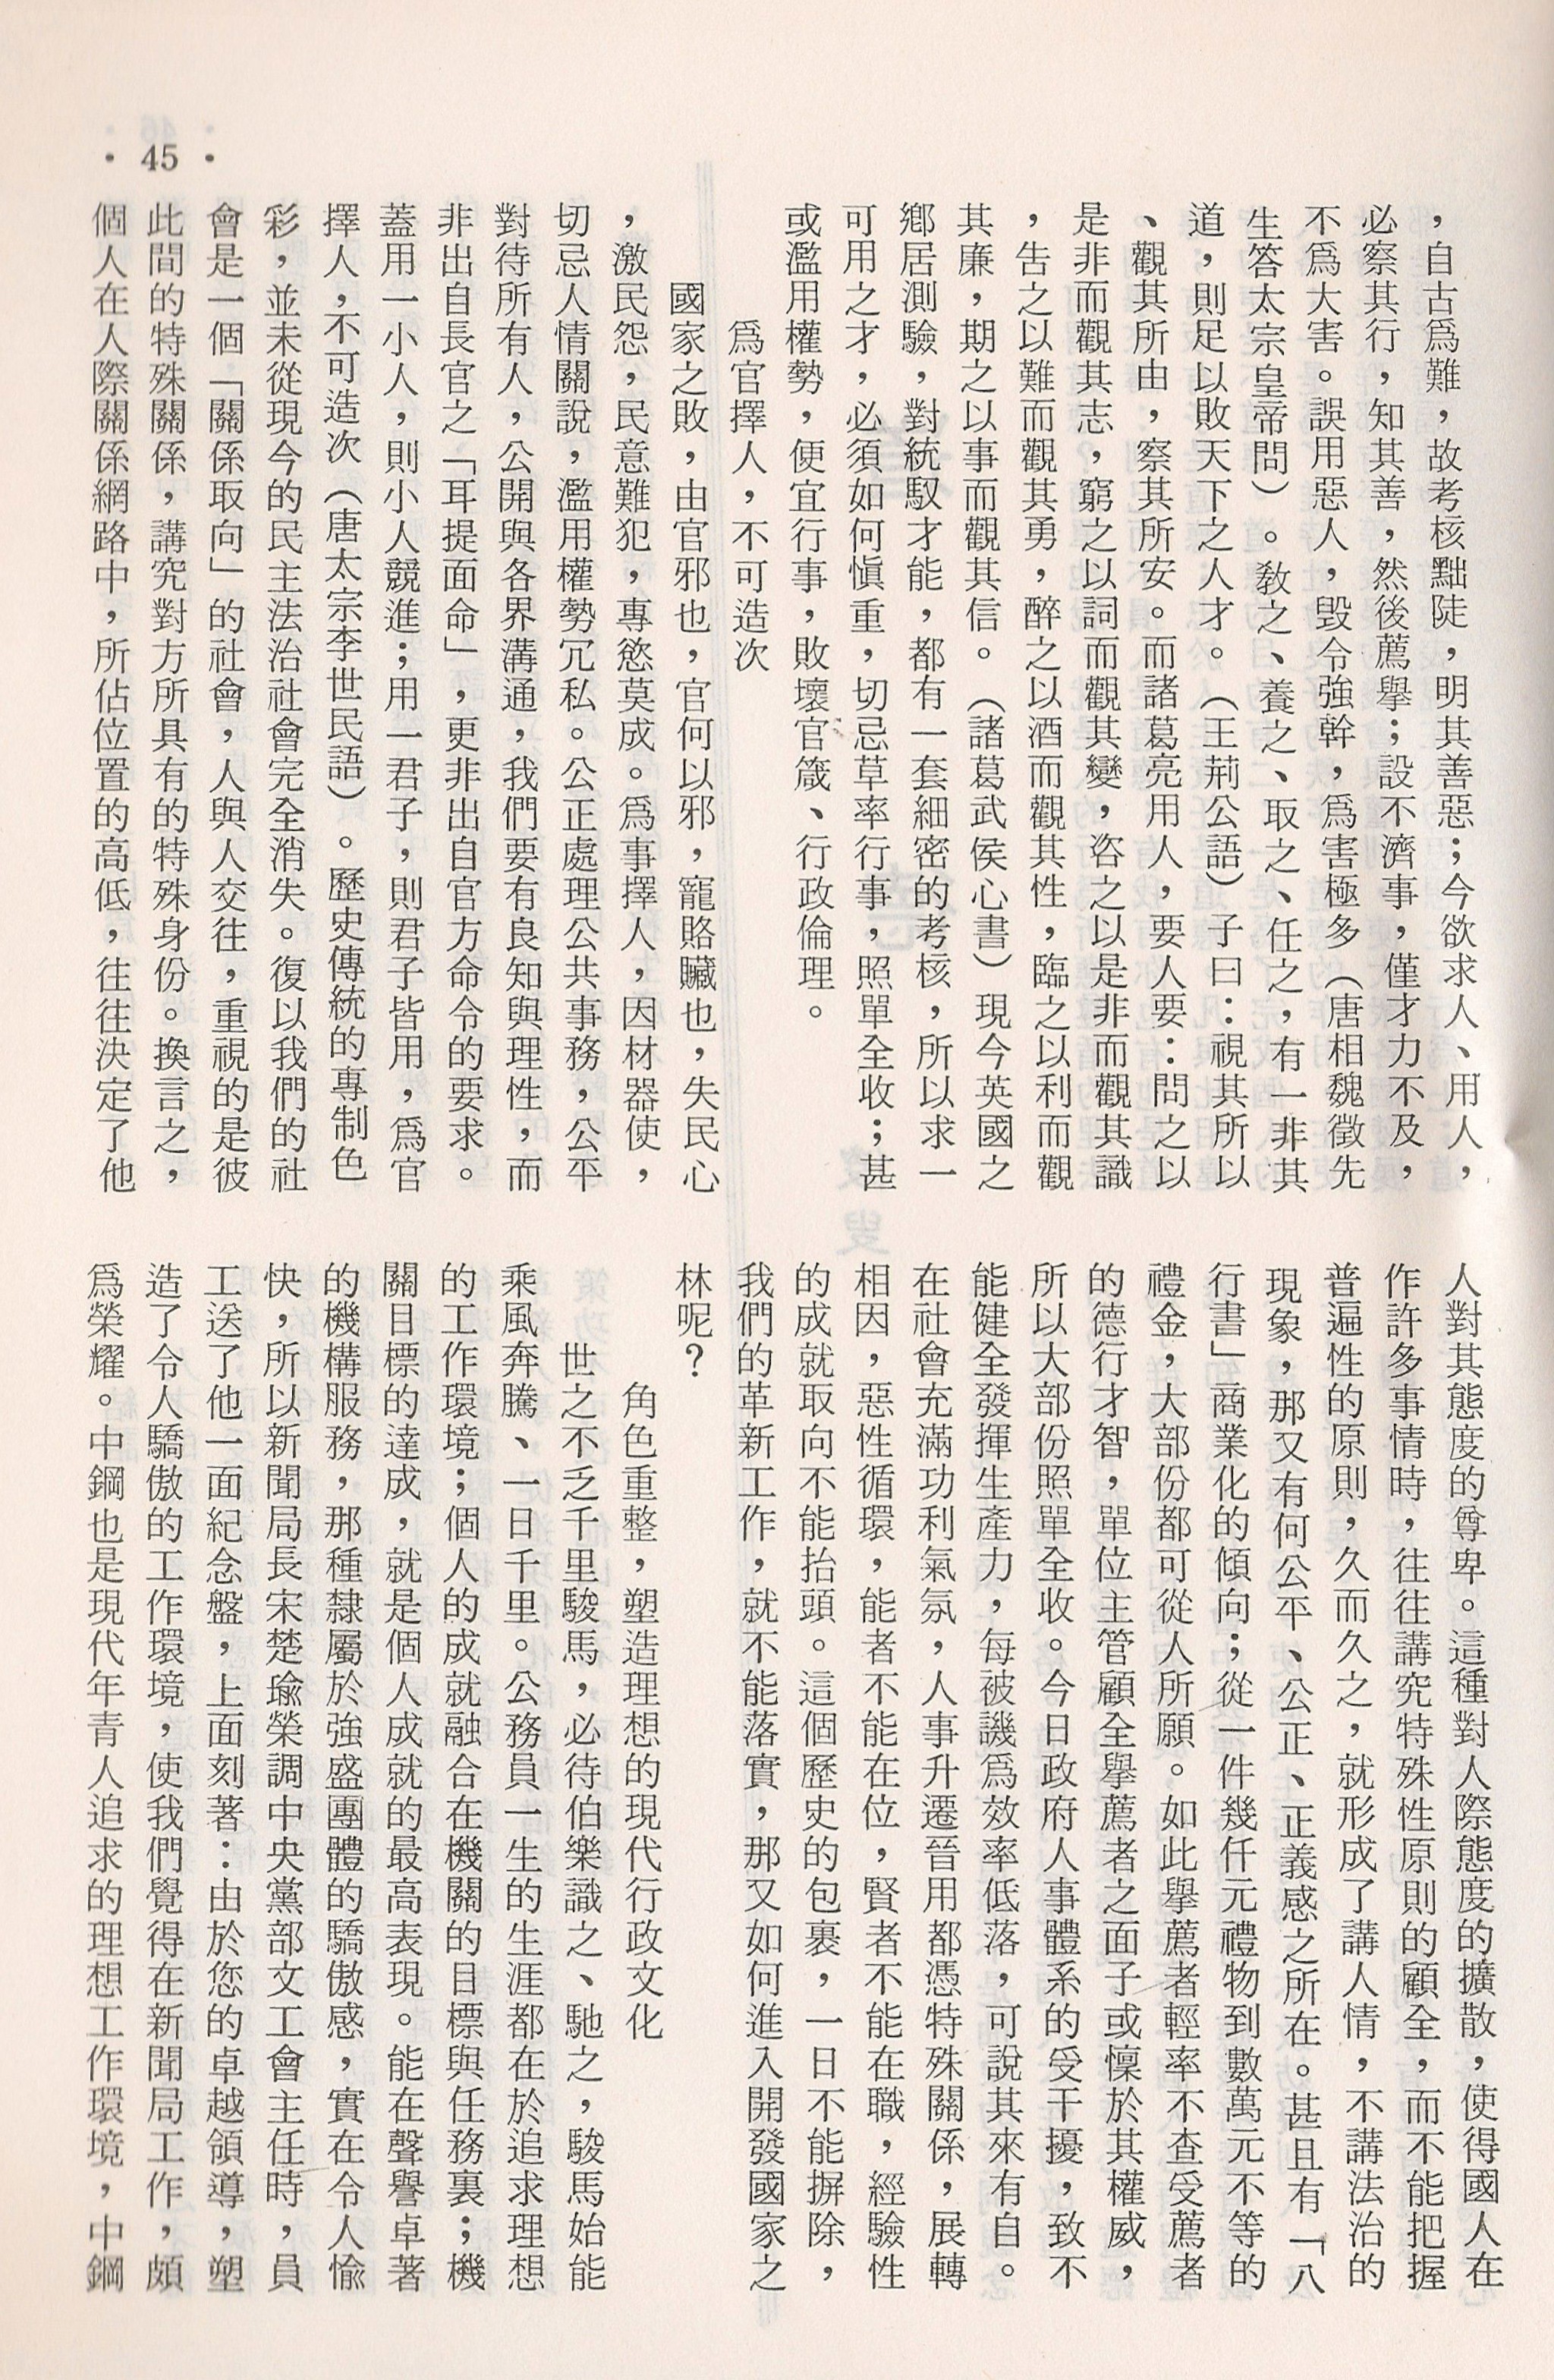 • 45 •
，自古爲難，故考核黜陟，明其善惡；今欲求人、用人，
必察其行，知其善，然後薦擧；設不濟事，僅才力不及，
不爲大害。誤用惡人，毁令強幹，爲害極多（唐相魏徵先
生答太宗皇帝問）。敎之、養之、取之、任之，有一非其
道，則足以敗天下之人才。（王荊公語）子曰：視其所以
、觀其所由，察其所安。而諸葛亮用人，要人要：問之以
是非而觀其志，窮之以詞而觀其變，咨之以是非而觀其識
，告之以難而觀其勇，醉之以酒而觀其性，臨之以利而觀
其廉，期之以事而觀其信。（諸葛武侯心書）現今英國之
鄕居測驗，對統馭才能，都有一套細密的考核，所以求一
可用之才，必須如何愼重，切忌草率行事，照單全收；甚
或濫用權勢，便宜行事，敗壞官箴、行政倫理。
爲官擇人，不可造次
國家之敗，由官邪也，官何以邪，寵賂贓也，失民心
，激民怨，民意難犯，專慾莫成。爲事擇人，因材器使，
切忌人情關說，濫用權勢冗私。公正處理公共事務，公平
對待所有人，公開與各界溝通，我們要有良知與理性，而
非出自長官之「耳提面命」，更非出自官方命令的要求。
蓋用一小人，則小人競進；用一君子，則君子皆用，爲官
擇人，不可造次（唐太宗李世民語）。歷史傳統的專制色
彩，並未從現今的民主法治社會完全消失。復以我們的社
會是一個「關係取向」的社會，人與人交往，重視的是彼
此間的特殊關係，講究對方所具有的特殊身份。換言之，
個人在人際關係網路中，所佔位置的高低，往往決定了他
人對其態度的尊卑。這種對人際態度的擴散，使得國人在
作許多事情時，往往講究特殊性原則的顧全，而不能把握
普遍性的原則，久而久之，就形成了講人情，不講法治的
現象，那又有何公平、公正、正義感之所在。甚且有「八
行書」商業化的傾向；從一件幾仟元禮物到數萬元不等的
禮金，大部份都可從人所願。如此擧薦者輕率不查受薦者
的德行才智，單位主管顧全擧薦者之面子或懍於其權威，
所以大部份照單全收。今日政府人事體系的受干擾，致不
能健全發揮生產力，每被譏爲效率低落，可說其來有自。
在社會充滿功利氣氛，人事升遷晉用都憑特殊關係，展轉
相因，惡性循環，能者不能在位，賢者不能在職，經驗性
的成就取向不能抬頭。這個歷史的包裹，一日不能摒除，
我們的革新工作，就不能落實，那又如何進入開發國家之
林呢？
角色重整，塑造理想的現代行政文化
世之不乏千里駿馬，必待伯樂識之、馳之，駿馬始能
乘風奔騰、一日千里。公務員一生的生涯都在於追求理想
的工作環境；個人的成就融合在機關的目標與任務裏；機
關目標的達成，就是個人成就的最高表現。能在聲譽卓著
的機構服務，那種隸屬於強盛團體的驕傲感，實在令人愉
快，所以新聞局長宋楚瑜榮調中央黨部文工會主任時，員
工送了他一面紀念盤，上面刻著：由於您的卓越領導，塑
造了令人驕傲的工作環境，使我們覺得在新聞局工作，頗
爲榮耀。中鋼也是現代年青人追求的理想工作環境，中鋼